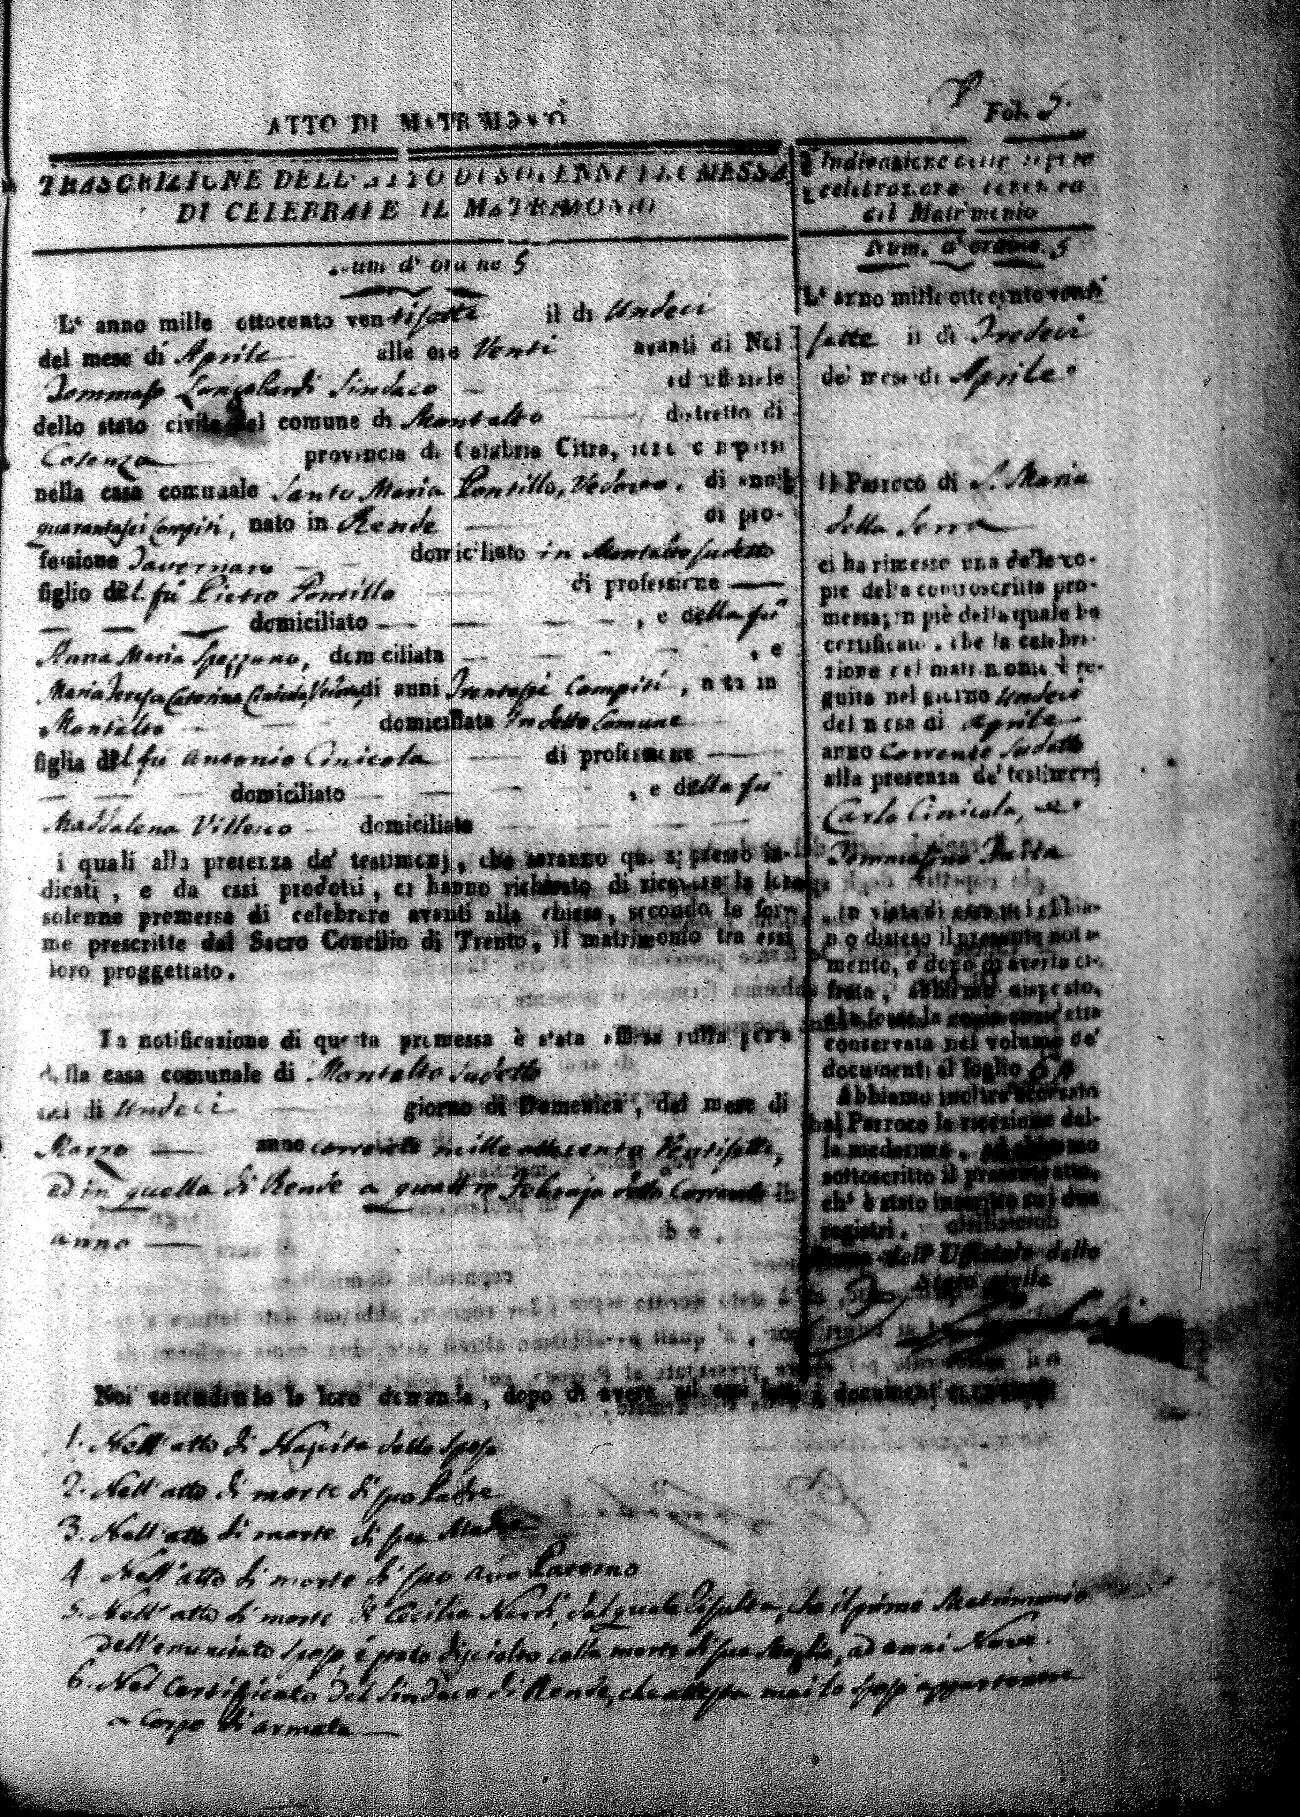 Fol. 5.
ATTO DI MATRIMONIO
TRASCRIZIONE DELL'ATTO DI SOLENNE PROMESSA
DI CELEBRARE IL MATRIMONIO
Num d'ordine 5
L'anno mille ottocento ventisette il dì Undeci
del mese di Aprile alle ore Venti avanti di Noi
Tommaso Longobardi Sindaco ed uffiziale
dello stato civile del comune di Montalto distretto di
Cosenza provincia di Calabria Citra, sono comparsi
nella casa comunale Santo Maria Pontillo, Vedovo, di anni
quarantasei compiti, nato in Rende di pro-
fessione Tavernaro domiciliato in Montalto sudetto
figlio del fù Pietro Pontillo di professione
domiciliato , e della fù
Anna Maria Spezzano, domiciliata , e
Maria Teresa Caterina Cinicola di anni Trentasei Compiti, nata in
Montalto domiciliata in detto Comune
figlia del fù Antonio Cinicola di professione
domiciliato , e della fù
Maddalena Villecco domiciliata
i quali alla presenza de' testimonj, che saranno qui appresso in-
dicati, e da essi prodotti, ci hanno richiesto di ricevere la loro
solenne promessa di celebrare avanti alla chiesa, secondo le for-
me prescritte dal Sacro Concilio di Trento, il matrimonio tra essi
loro proggettato.
La notificazione di questa promessa è stata affissa sulla porta
della casa comunale di Montalto sudetto
nel dì Undeci giorno di Domenica, del mese di
Marzo anno corrente mille ottocento Ventisette,
ed in quella di Rende a quattro Febrajo detto Corrente
anno
Indicazione della seguita
celebrazione canonica
del Matrimonio
Num. d'ordine. 5
L'anno mille ottocento venti
sette il dì Tredeci
del mese di Aprile
Il Parroco di S. Maria
della Serra
ci ha rimesso una delle co-
pie della controscritta pro-
messa; in piè della quale ha
certificato, che la celebra-
zione del matrimonio è se-
guita nel giorno Undeci
del mese di Aprile
anno corrente sudetto
alla presenza de' testimonj
Carlo Cinicola, e
Tommasino
In vista di essa noi abbia-
mo disteso il presente nota-
mento, e dopo di averla ci-
frata, abbiamo disposto,
che fosse la copia anzidetta
conservata nel volume de'
documenti al foglio
Abbiamo inoltre accusato
al Parroco la ricezione del-
la medesima, ed abbiamo
sottoscritto il presente atto,
ch' è stato inserito sui due
registri.
Firma dell' Uffiziale dello
Stato civile
Noi secondando la loro domanda, dopo di avere ad essi letti i documenti
1. Nell'atto di Nascita dello sposo
2. Nell'atto di morte di suo Padre
3. Nell'atto di morte di sua Madre
4. Nell'atto di morte di suo avo Paterno
5. Nell'atto di morte di Cecilia Nardi, dal quale risulta, che il primo Matrimonio
dell'enunciato sposo è stato disciolto colla morte di sua Moglie, ad anni Nove.
6. Nel Certificato del Sindaco di Rende, che attesta mai lo sposo appartenere
a Corpo d'armata